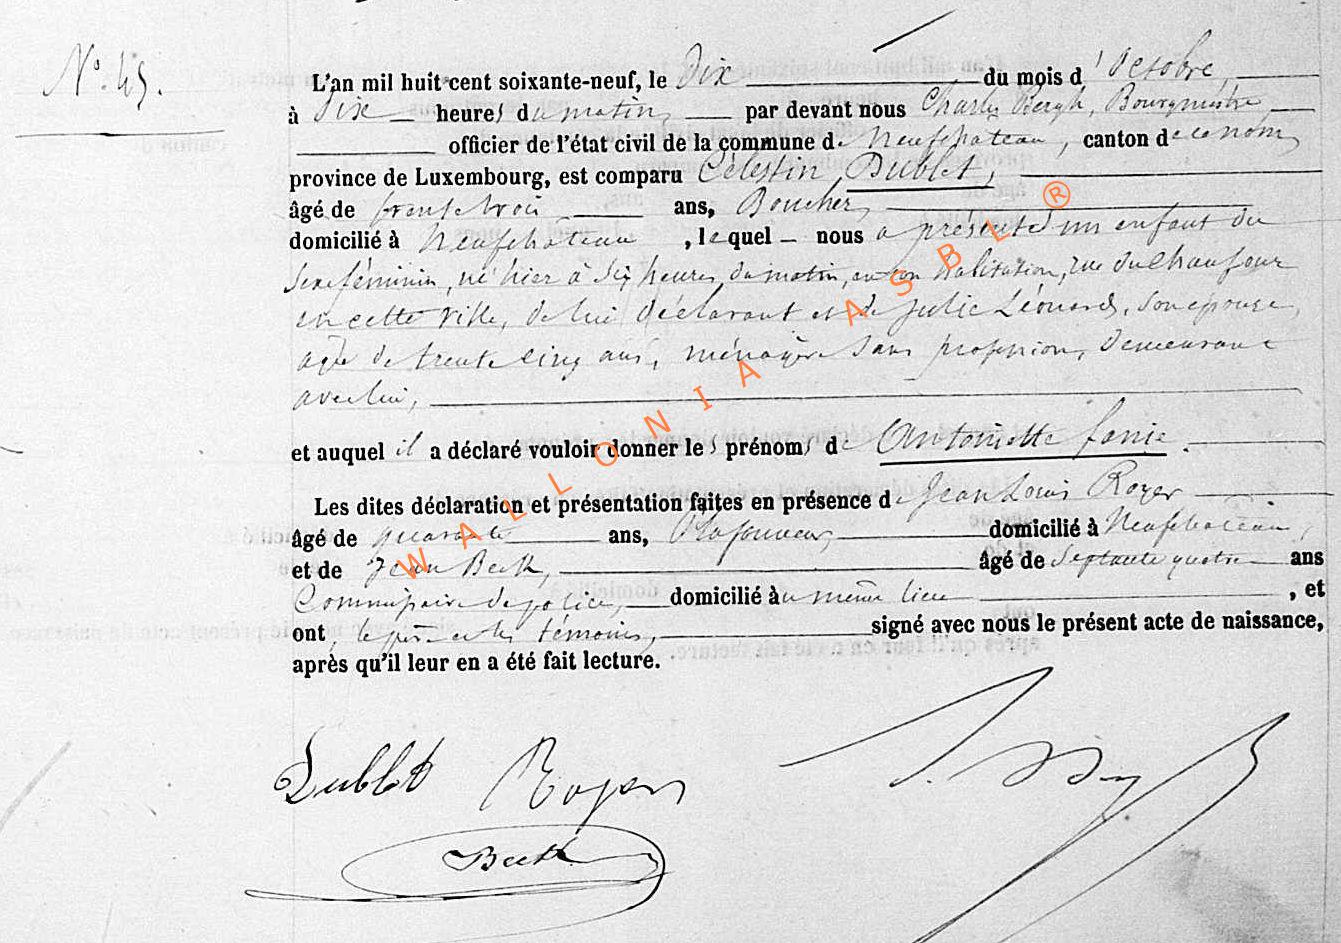 N° 45.
L'an mil huit cent soixante-neuf, le Dix du mois d'Octobre,
à Dix heures du matin, par devant nous Charles Bergh, Bourgmestre
officier de l'état civil de la commune de Neufchateau, canton de ce nom,
province de Luxembourg, est comparu Célestin Dublet,
âgé de trente trois ans, Boucher,
domicilié à Neufchateau, lequel nous a présenté un enfant du
sexe féminin, né hier à six heures du matin, en son habitation, rue du Chaufour
en cette ville, de lui déclarant et de Julie Léonard, son épouse,
agée de trente cinq ans, ménagère sans profession, demeurant
avec lui,
et auquel il a déclaré vouloir donner les prénoms de Antoinette fanie.
Les dites déclaration et présentation faites en présence de Jean Louis Royer
âgé de quarante ans, Plafonneur, domicilié à Neufchateau,
et de Jean Beck, âgé de septante quatre ans
Commissaire de police, domicilié au même lieu, et
ont, le père et les témoins, signé avec nous le présent acte de naissance,
après qu'il leur en a été fait lecture.
Dublet Royer
Beck
WALLONIA ASBL ®